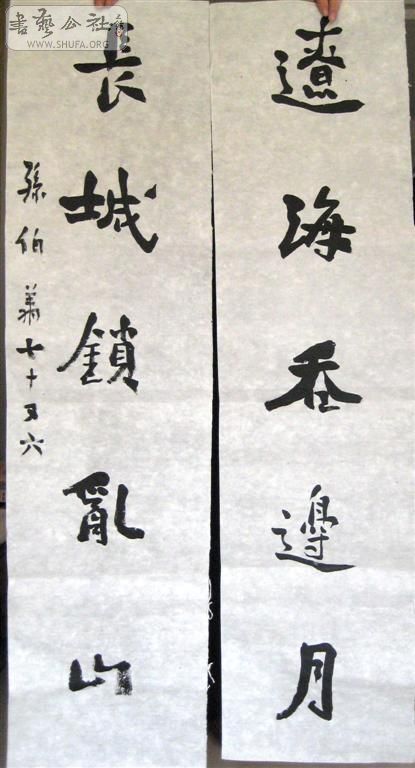 遼海吞邊月
長城鎖亂山
孫伯翔七十又六
書藝公社
WWW.SHUFA.ORG